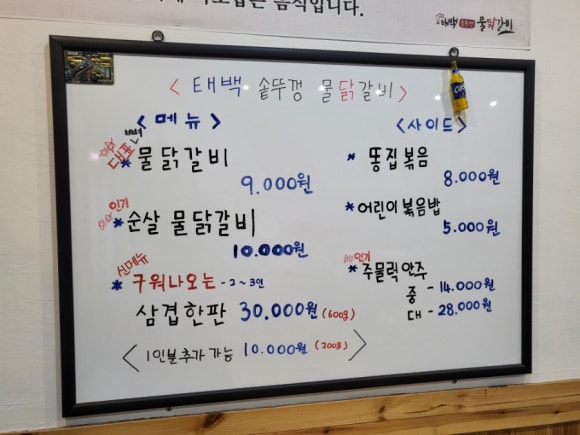 음식입니다.
태백 물닭갈비
< 태백 솥뚜껑 물닭갈비 >
< 메뉴 >
대표 뼈
* 물닭갈비
9.000원
인기
* 순살 물닭갈비
10.000원
신메뉴
* 구워나오는 - 2~3인
삼겹한판 30.000원 (600g)
< 1인분추가 가능 10.000원 (200g) >
< 사이드 >
* 똥집볶음
8.000원
* 어린이볶음밥
5.000원
인기
* 주물럭안주
중 - 14.000원
대 - 28.000원